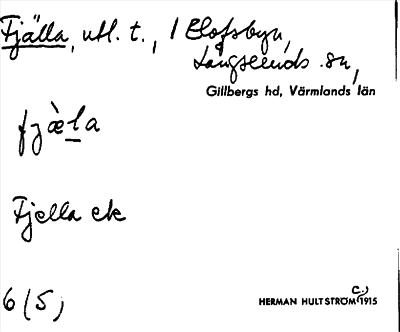 Fjälla, utl. t., 1 Olofsbyn,
Långseruds sn,
Gillbergs hd, Värmlands län
fjæ̀la
Fjella ek
6 (5)
HERMAN HULTSTRÖM c.) 1915